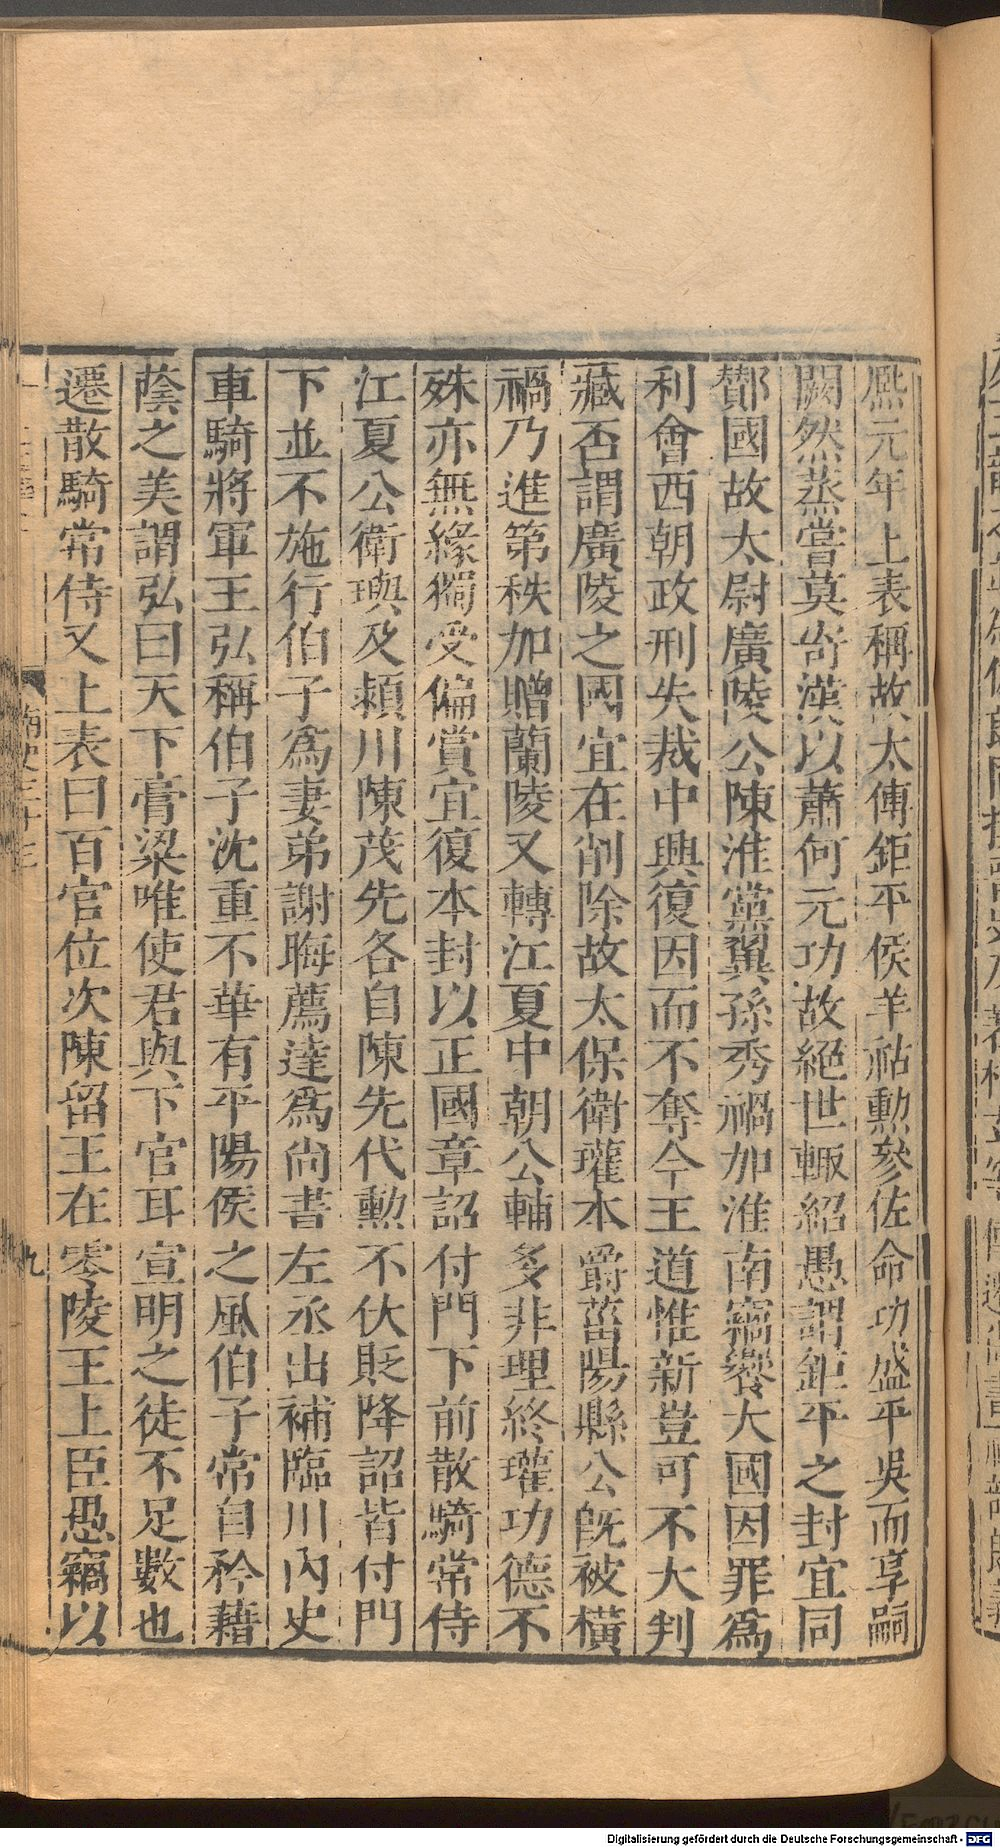 熙元年上表稱故太傅鉅平侯羊祜勳參佐命功盛平吳而享嗣
闕然蒸嘗莫寄漢以蕭何元功故絕世輒紹愚謂鉅平之封宜同
酇國故太尉廣陵公陳淮黨翼孫秀禍加淮南竊饗大國因罪爲
利會西朝政刑失裁中興復因而不奪今王道惟新豈可不大判
臧否謂廣陵之國宜在削除故太保衛瓘本爵菑陽縣公旣被橫
禍乃進第秩加贈蘭陵又轉江夏中朝公輔多非理終瓘功德不
殊亦無緣獨受偏賞宜復本封以正國章詔付門下前散騎常侍
江夏公衛璵及頴川陳茂先各自陳先代勳不伏貶降詔皆付門
下並不施行伯子爲妻弟謝晦薦達爲尚書左丞出補臨川內史
車騎將軍王弘稱伯子沈重不華有平陽侯之風伯子常自矜藉
蔭之美謂弘曰天下膏粱唯使君與下官耳宣明之徒不足數也
遷散騎常侍又上表曰百官位次陳留王在零陵王上臣愚竊以
南史三十三
九
Digitalisierung gefördert durch die Deutsche Forschungsgemeinschaft - DFG